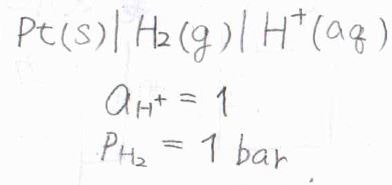 Pt(s)| H₂(g)| H⁺(aq)
a_H⁺ = 1
P_H₂ = 1 bar.